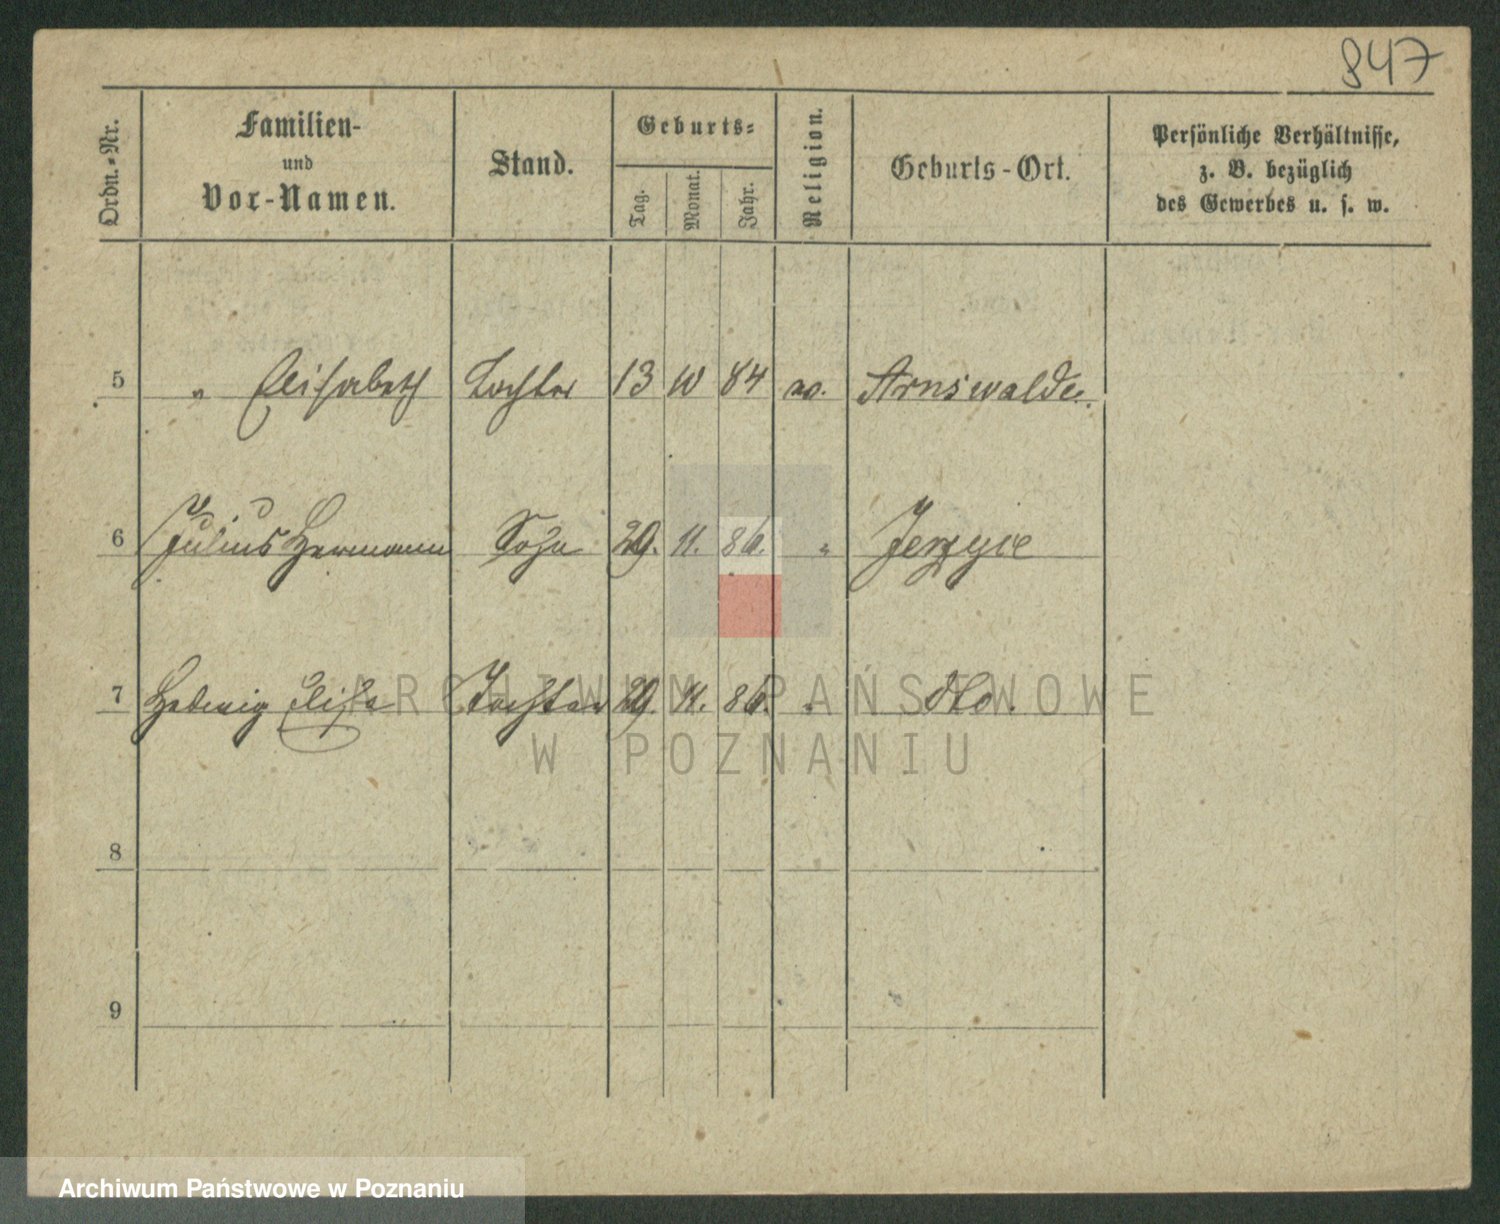 847
Ordn.-Nr.
Familien-
und
Vor-Namen.
Stand.
Geburts-
Tag.
Monat.
Jahr.
Religion.
Geburts-Ort.
Persönliche Verhältnisse,
z. B. bezüglich
des Gewerbes u. s. w.
5 " Elisabeth Tochter 13 10 84 ev. Arnswalde.
6 Julius Hermann Sohn 29. 11. 86. " Jerzyce
7 Hedwig Tochter 29. 11. 86. " dto.
8
9
ARCHIWUM PAŃSTWOWE
W POZNANIU
Archiwum Państwowe w Poznaniu